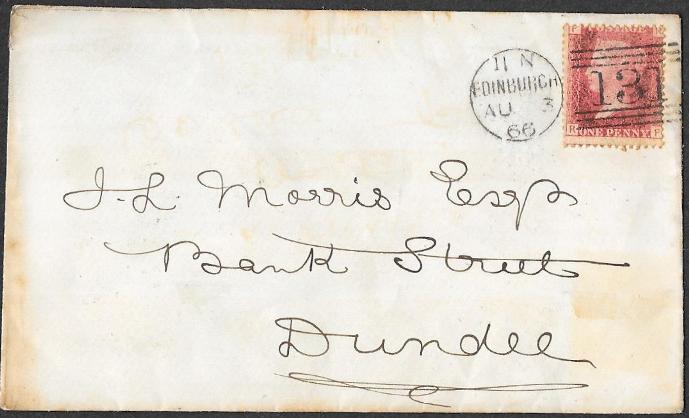 11 N
EDINBURGH
AU 3
66
131
R ONE PENNY. F
J. L. Morris Esqr
Bank Street
Dundee